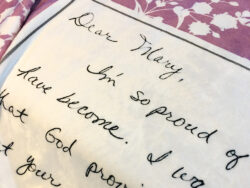 Dear Mary,
I'm so proud of
have become. I
that God
your